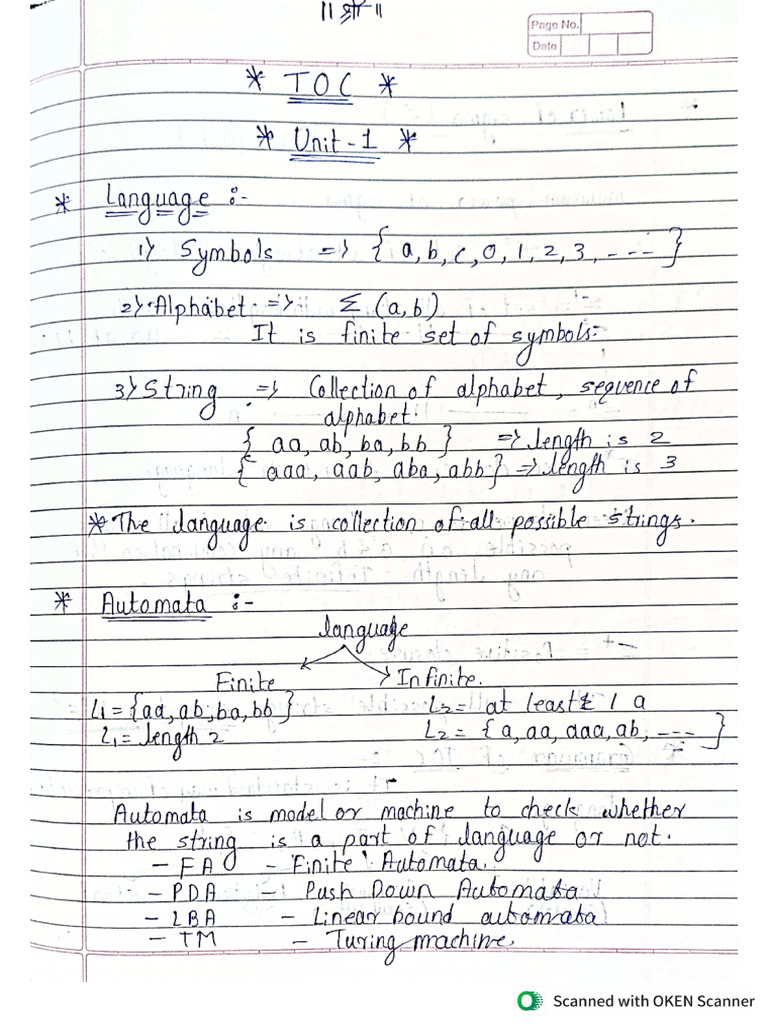 || श्री ||
Page No.
Date
* TOC *
* Unit - 1 *
* Language :-
1) Symbols => { a, b, c, 0, 1, 2, 3, - - - }
2) Alphabet => Σ (a, b)
It is finite set of symbols.
3) String => Collection of alphabet, sequence of
alphabet.
{ aa, ab, ba, bb } => length is 2
{ aaa, aab, aba, abb } => length is 3
* The language is collection of all possible strings.
* Automata :-
language
Finite Infinite.
L1 = {aa, ab, ba, bb } L2 = at least 1 a
L1 = length 2 L2 = { a, aa, aaa, ab, - - - }
Automata is model or machine to check whether
the string is a part of language or not.
- FA - Finite Automata.
- PDA - Push Down Automata
- LBA - Linear bound automata
- TM - Turing machine.
Scanned with OKEN Scanner